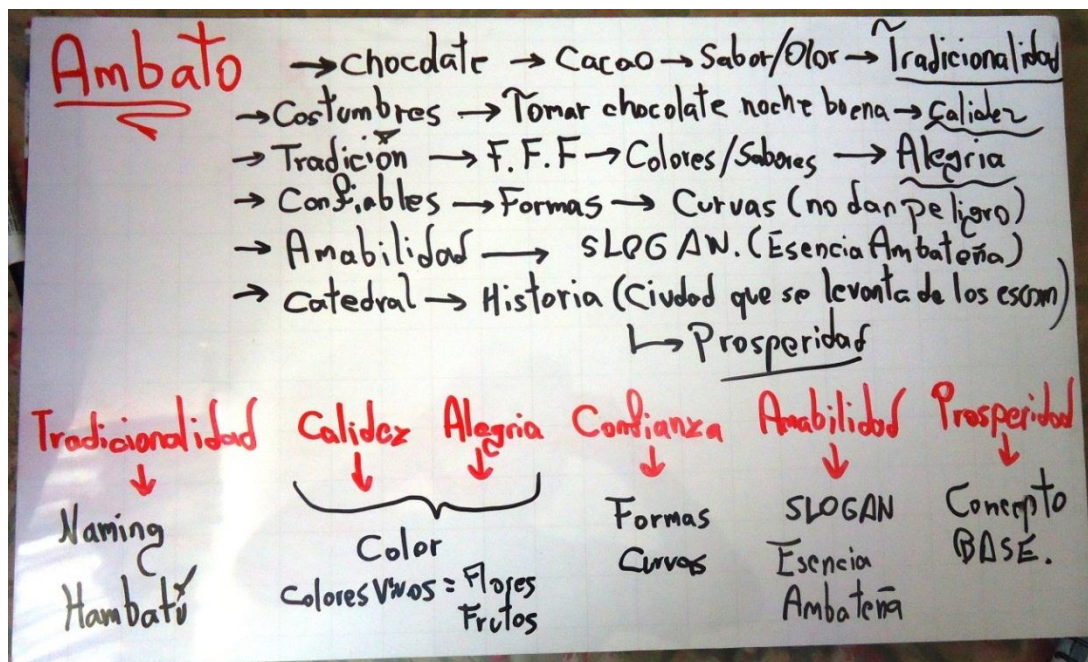 Ambato → chocolate → Cacao → Sabor/Olor → Tradicionalidad
→ Costumbres → Tomar chocolate noche buena → Calidez
→ Tradición → F.F.F → Colores/Sabores → Alegria
→ Confiables → Formas → Curvas (no dan peligro)
→ Amabilidad → SLOGAN. (Esencia Ambateña)
→ Catedral → Historia (Ciudad que se levanta de los escom)
↳ Prosperidad
Tradicionalidad Calidez Alegria Confianza Amabilidad Prosperidad
Naming
Hambatú
Color
Colores Vivos = Flores
Frutos
Formas
Curvas
SLOGAN
Esencia
Ambateña
Concepto
BASE.